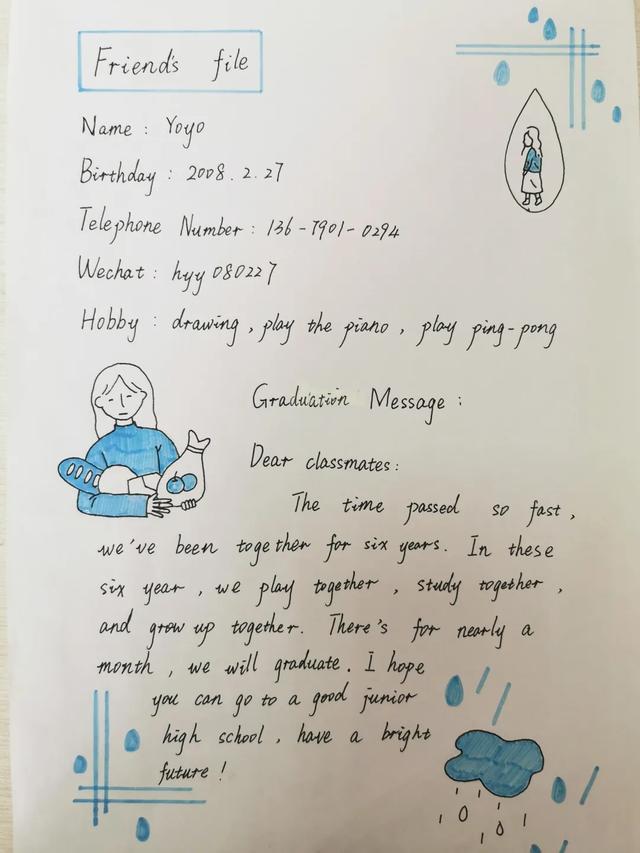 Friend's file
Name : Yoyo
Birthday : 2008.2.27
Telephone Number : 136-7901-0294
Wechat : hyy080227
Hobby : drawing , play the piano , play ping-pong
Graduation Message :
Dear classmates :
The time passed so fast ,
we've been together for six years. In these
six year , we play together , study together ,
and grow up together. There's for nearly a
month , we will graduate. I hope
you can go to a good junior
high school , have a bright
future !